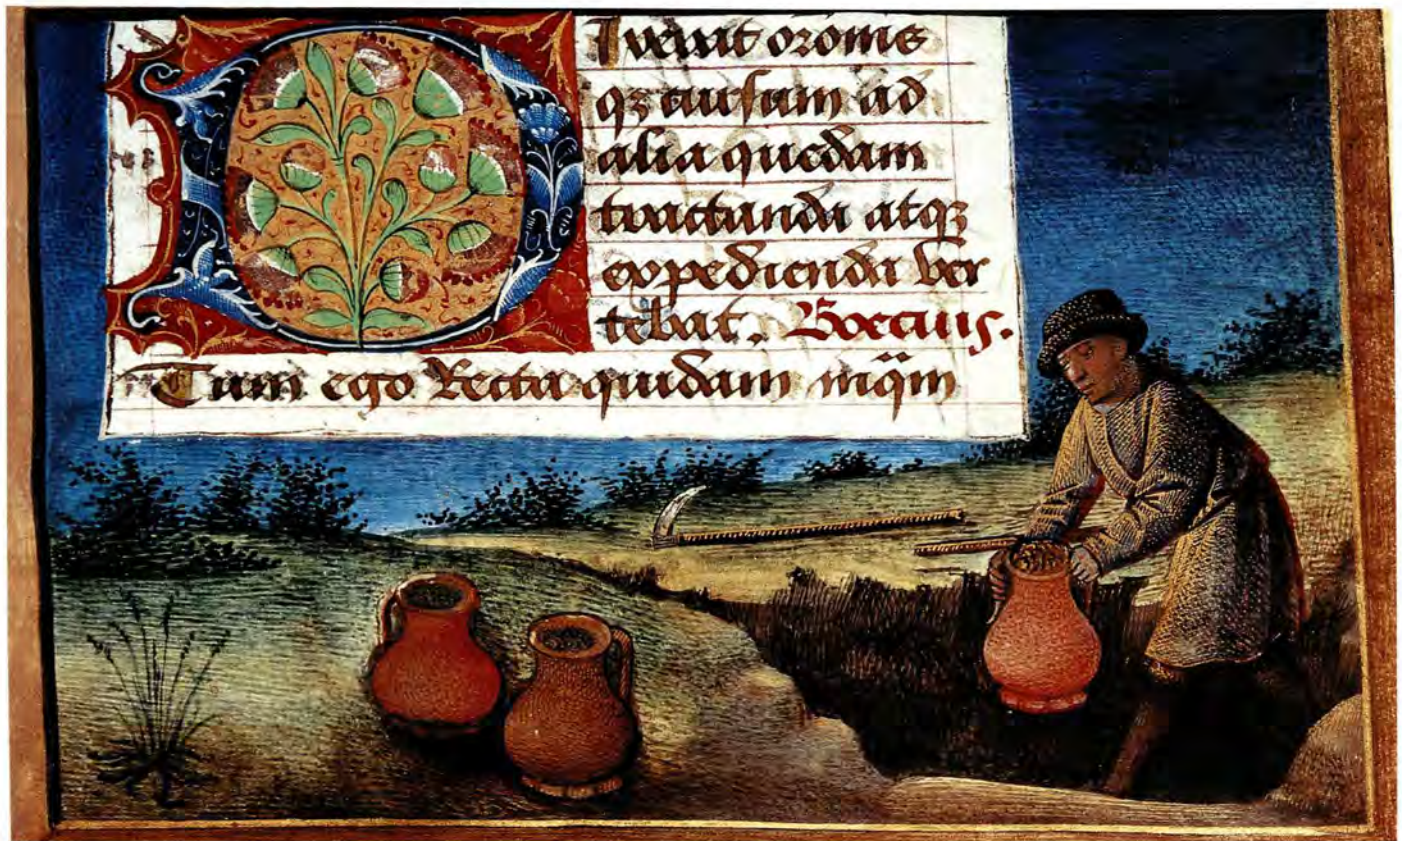 DIxerat oronis
qz cursum ad
alia quedam
tractanda atqz
expedienda ver
tebat. Boecius.
Tum ego Recta quidam inqm